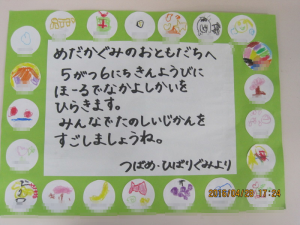 めだかぐみのおともだちへ
5がつ6にちきんようびに
ほーるでなかよしかいを
ひらきます。
みんなでたのしいじかんを
すごしましょうね。
つばめ・ひばりぐみより
2016/04/28 17:24